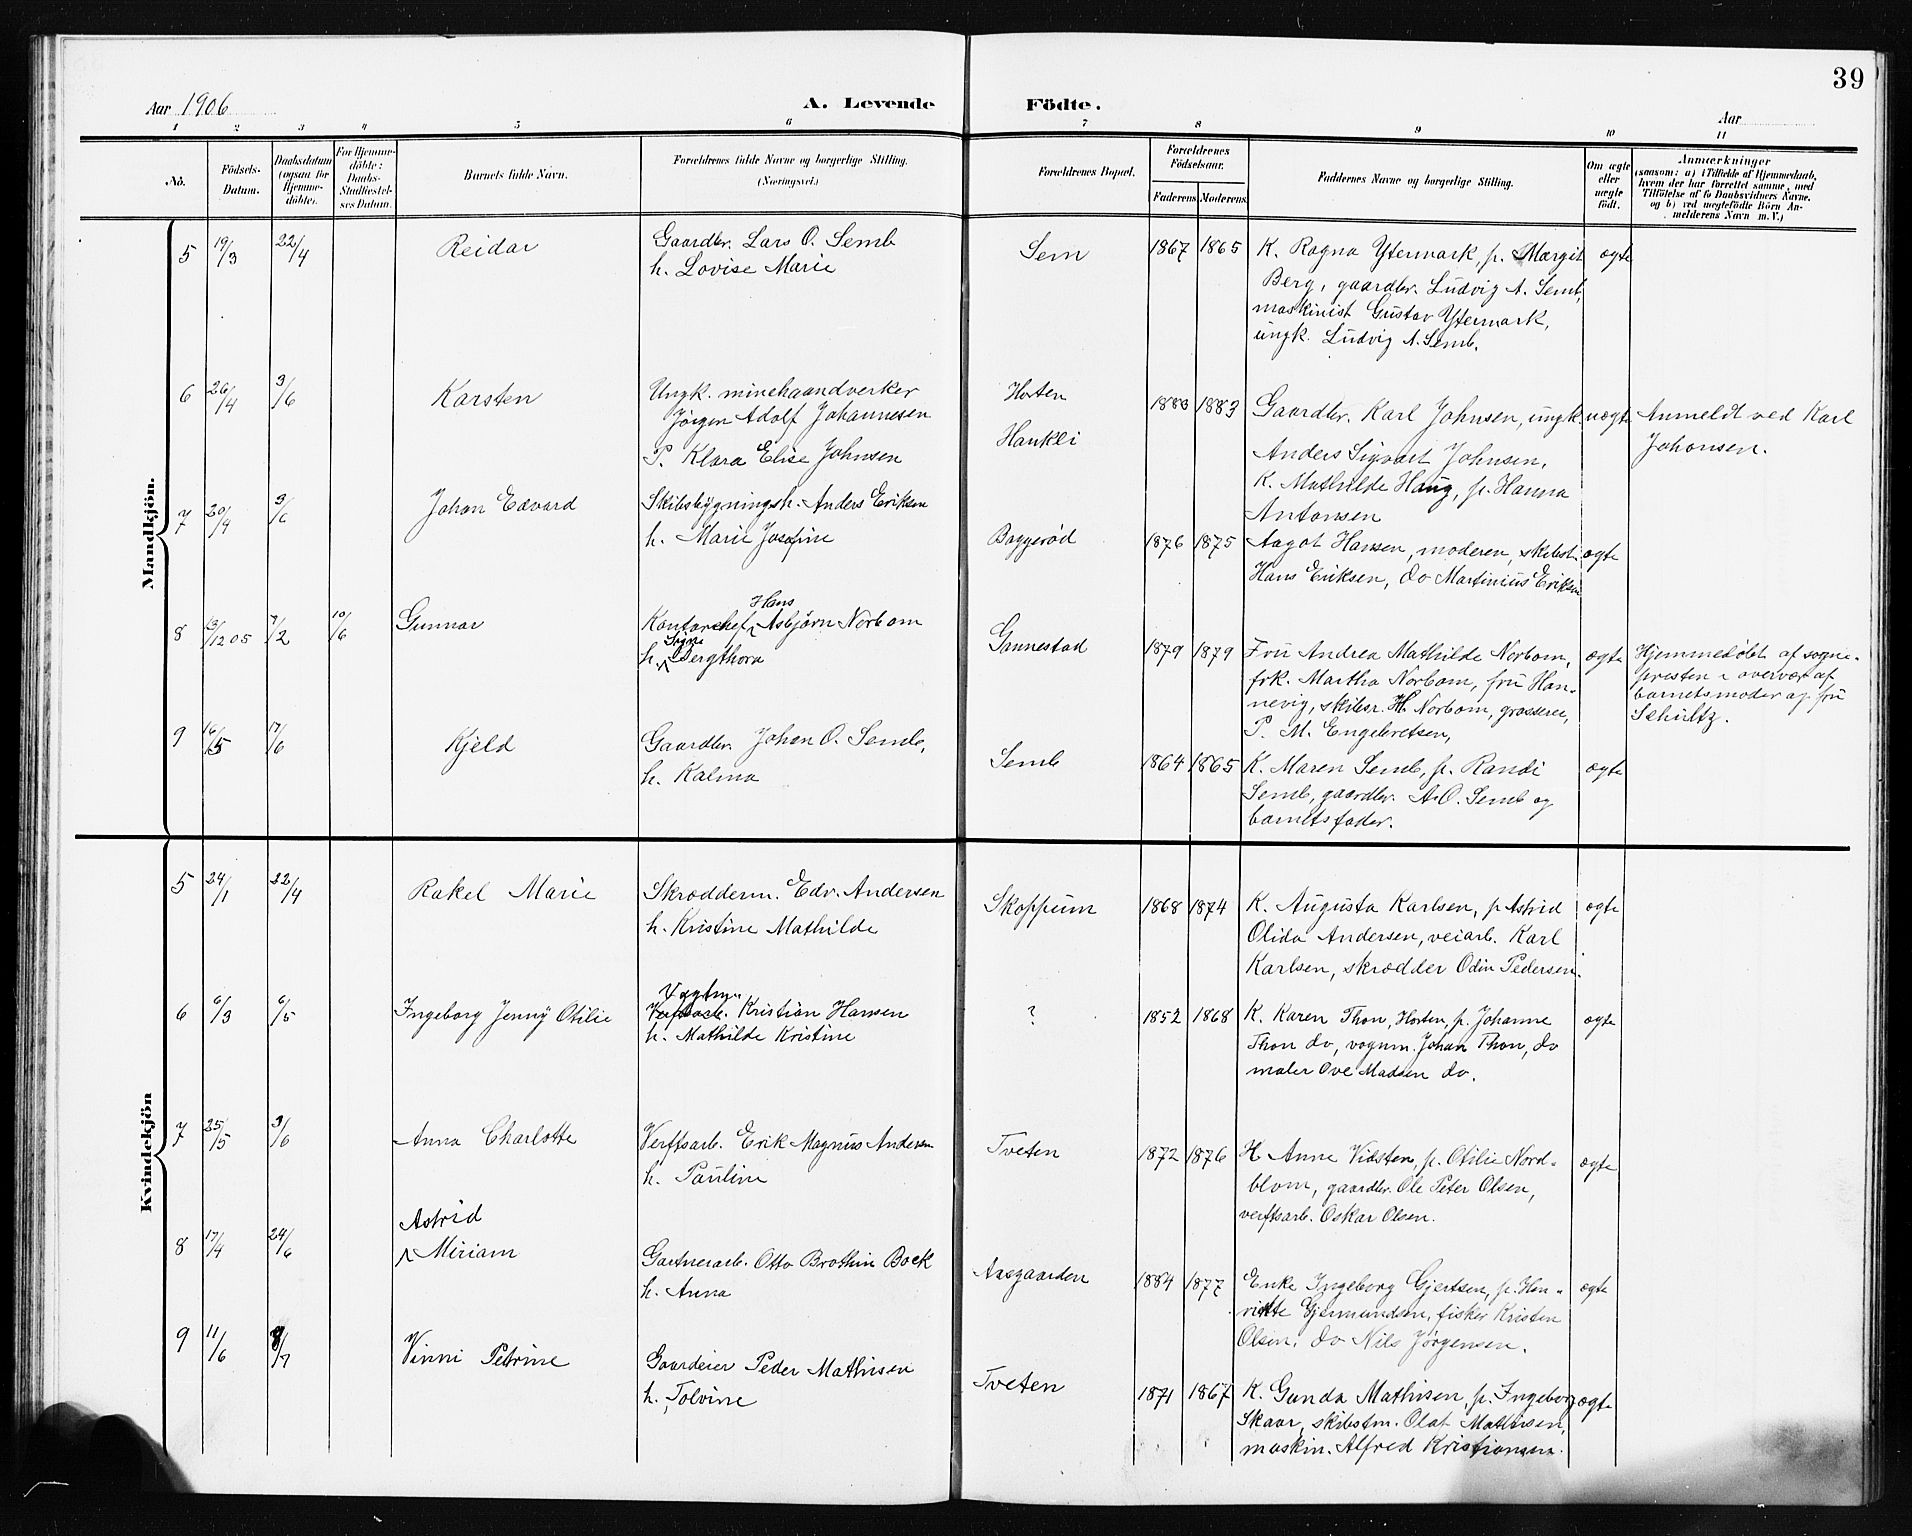 39
Aar 1906
A. Levende Födte.
Aar
1 2 3 4 5 6 7 8 9 10 11
No.
Födsels-Datum.
Daabsdatum (ogsaa for Hjemme-döbte).
For Hjemme-döbte: Daabs-Stadfæstel-ses Datum.
Barnets fulde Navn.
Forældrenes fulde Navne og borgerlige Stilling. (Næringsvei.)
Forældrenes Bopæl.
Forældrenes Födselsaar. Faderens Moderens
Faddernes Navne og borgerlige Stilling.
Om ægte eller uægte födt.
Anmærkninger
(saasom: a) i Tilfælde af Hjemmedaab, hvem der har forrettet samme, med Tilföielse af to Daabsvidners Navne, og b) ved uægtefödte Börn An-melderens Navn m. V.)
Mandkjön.
5 19/3 22/4 Reidar
Gaardbr. Lars O. Semb
h. Lovise Marie
Sem 1867 1865
K. Ragna Ytermark, p. Margit
Berg, gaardbr. Ludvig A. Semb,
maskinist Gustav Ytermark,
ungk. Ludvig A. Semb.
ægte
6 26/4 3/6 Karsten
Ungk. minehaandverker
Jørgen Adolf Johannesen
P. Klara Elise Johnsen
Horten
Haukli
1883 1883
Gaardbr. Karl Johnsen, ungk.
Anders Sigvart Johnsen,
K. Mathilde Haug, p. Hanna
Antonsen
uægte
Anmeldt ved Karl
Johansen.
7 20/4 3/6 Johan Edvard
Skibsbygningsh. Anders Eriksen
h. Marie Josefine
Boggerød 1876 1875
Aagot Hansen, moderen, skibst.
Hans Eriksen, do Martinius Eriksen
ægte
8 13/12 05 7/2 10/6 Gunnar
Hans
Kontorchef Asbjørn Norbom
Signe
h. Bergthora
Gannestad 1879 1879
Fru Andrea Mathilde Norbom,
frk. Martha Norbom, fru Han-
nevig, skibsr. H. Norbom, grosserer,
P. M. Engebretsen,
ægte
Hjemmedøbt af sogne-
presten i overvær af
barnets moder og fru
Schultz.
9 16/5 17/6 Kjeld
Gaardbr. Johan O. Semb,
h. Kalma
Semb 1864 1865
K. Maren Semb, p. Randi
Semb, gaardbr. A. O. Semb og
barnets fader.
ægte
Kvindekjön
5 24/1 22/4 Rakel Marie
Skrædderm. Edv. Andersen
h. Kristine Mathilde
Skoppum 1868 1874
K. Augusta Karlsen, p Astrid
Olida Andersen, veiarb. Karl
Karlsen, skrædder Odin Pedersen.
ægte
6 6/3 6/5 Ingeborg Jenny Otilie
Vogtm.
Kristian Hansen
h. Mathilde Kristine
? 1852 1868
K. Karen Thon, Horten, p. Johanne
Thon do, vognm. Johan Thon, do
maler Ove Madsen do.
ægte
7 25/5 3/6 Anna Charlotte
Verftsarb. Erik Magnus Andersen
h. Pauline
Tveten 1872 1876
H Anne Vidsten, p. Otilie Nord-
blom, gaardbr. Ole Peter Olsen,
verftsarb. Oskar Olsen.
ægte
Astrid
8 17/4 24/6 Miriam
Gartnerarb. Otto Brothin Bock
h. Anna
Aasgaarden 1884 1877
Enke Ingeborg Gjertsen, p. Hen-
rikte Gjermundsen, fisker Kristen
Olsen, do Nils Jørgensen.
ægte
9 11/6 8/7 Vinni Petrine
Gaardeier Peder Mathisen
h. Tolvine
Tveten 1871 1867
K. Gunda Mathisen, p. Ingeborg
Skaar, skibstm. Olaf Mathisen,
maskin. Alfred Kristiansen.
ægte